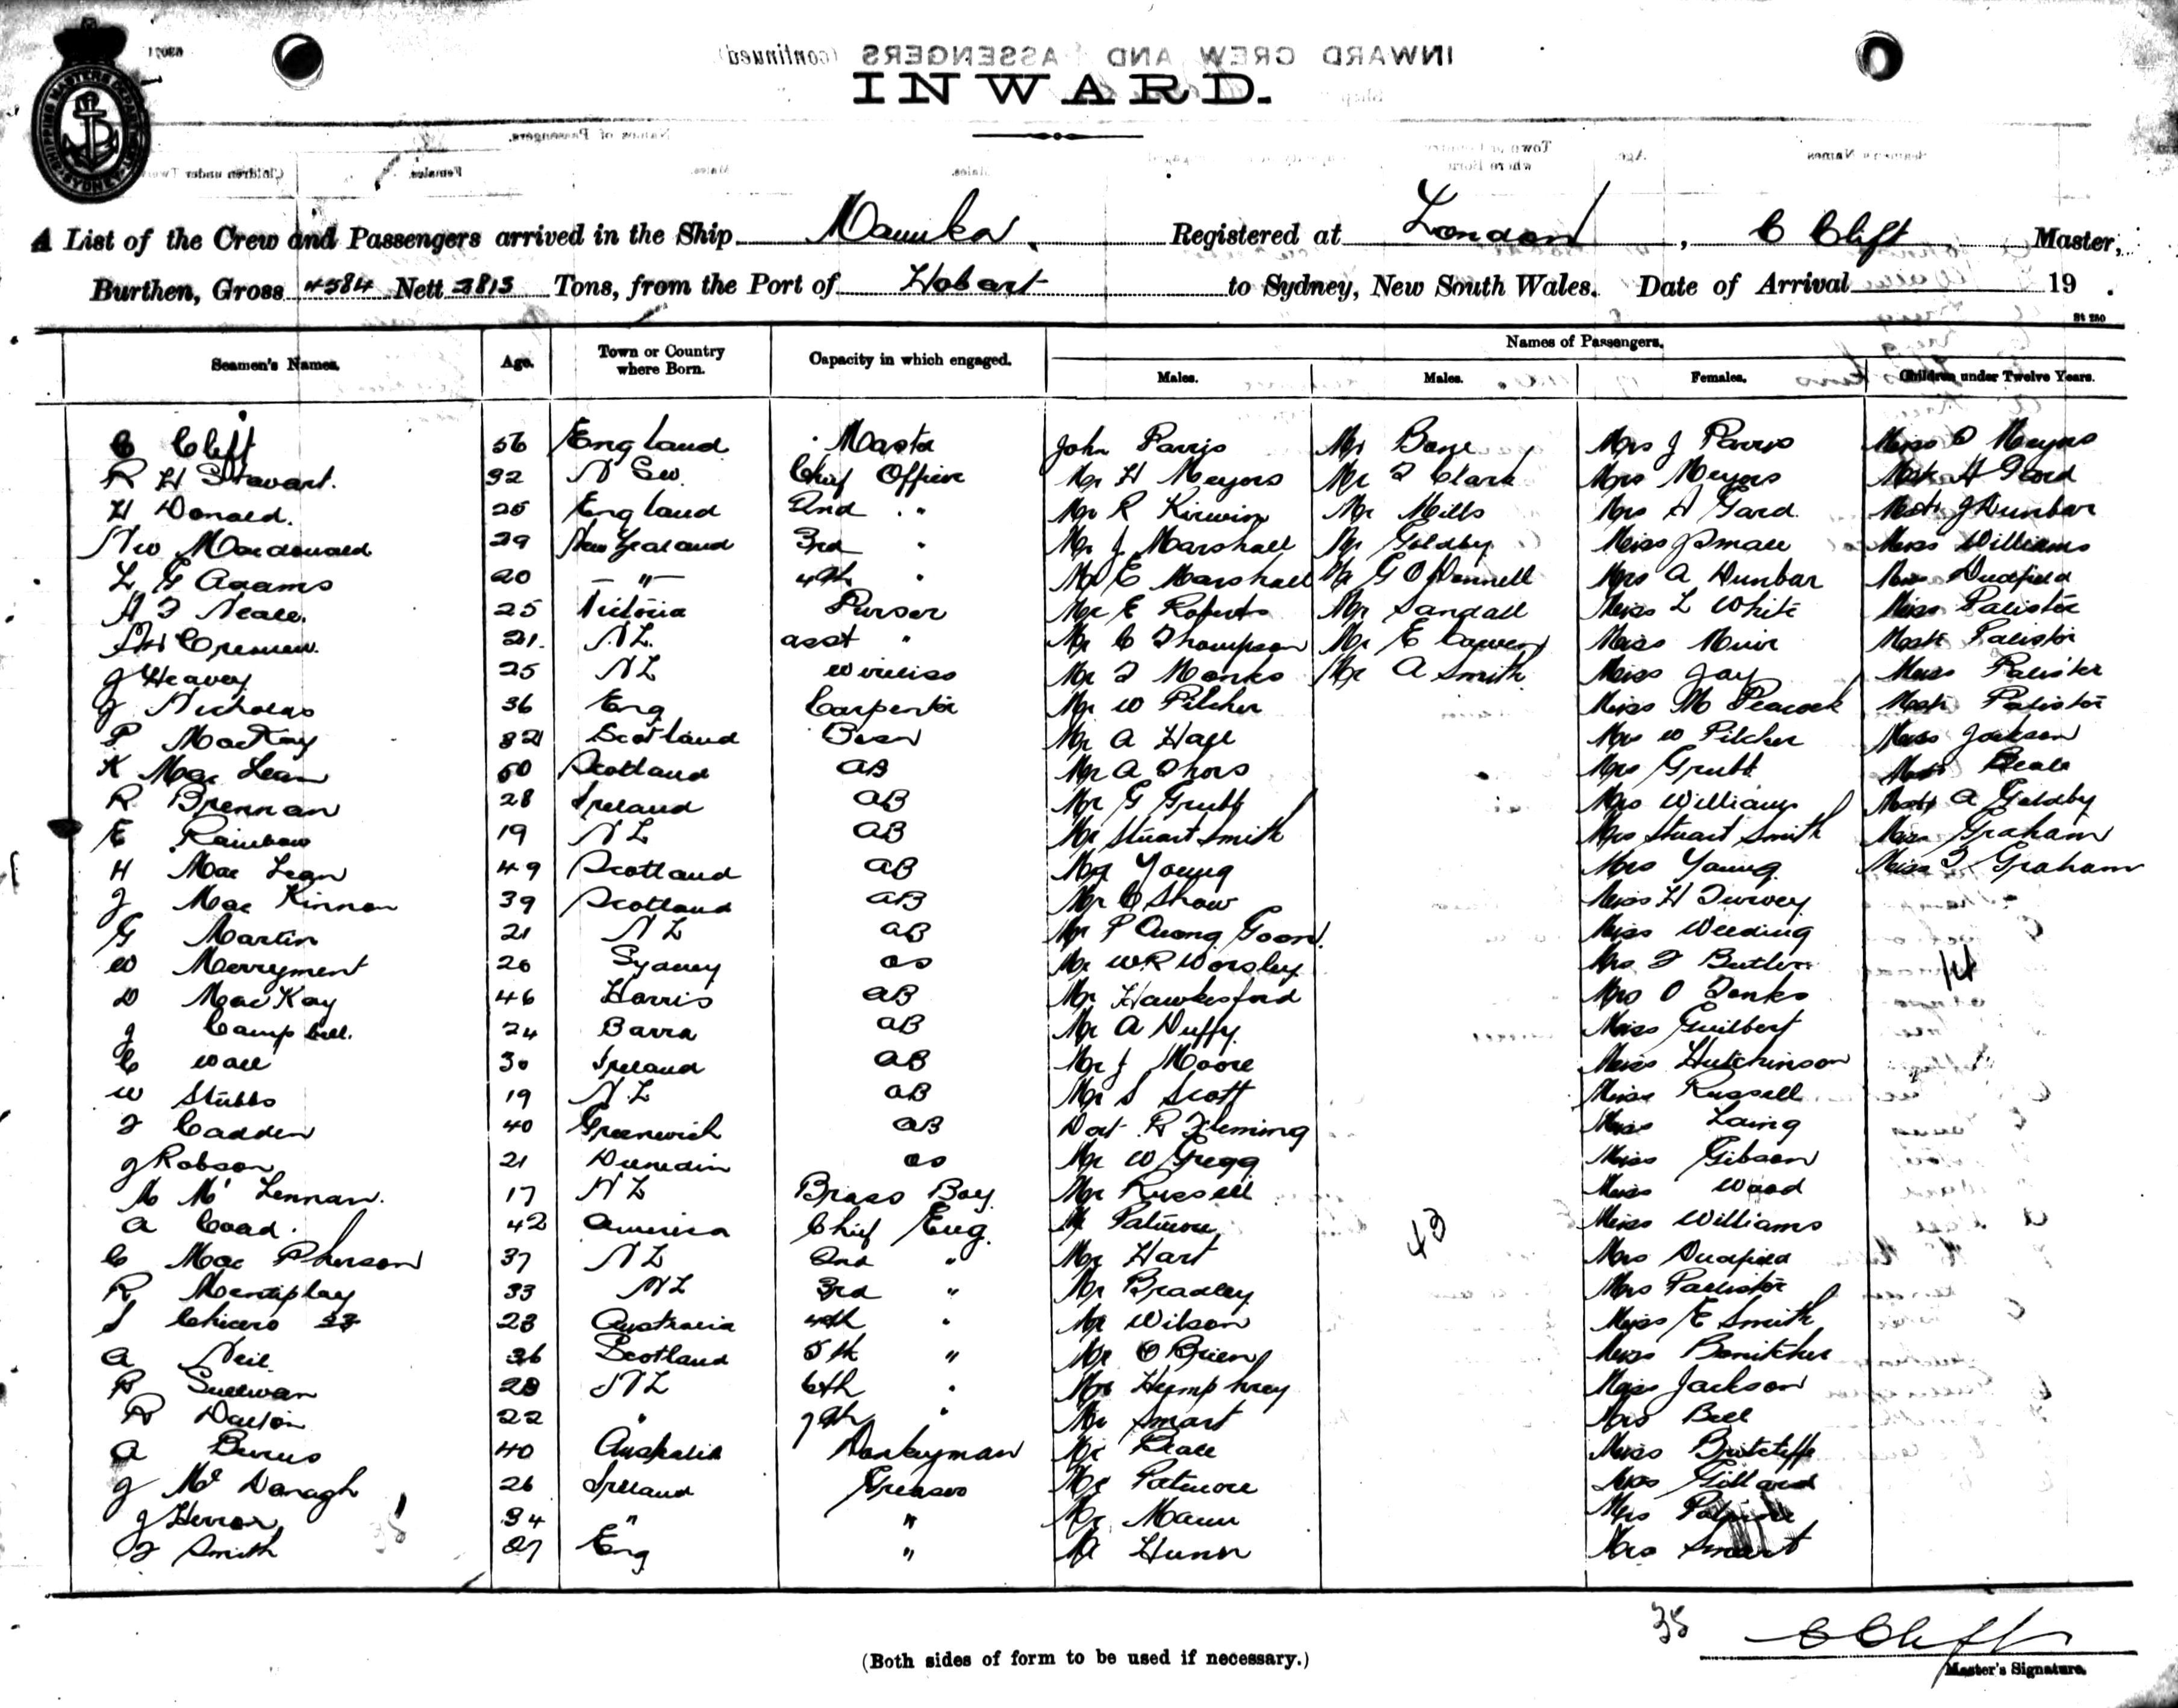 INWARD CREW AND PASSENGERS (continued)
INWARD.
SHIPPING MASTERS DEPARTMENT SYDNEY
A List of the Crew and Passengers arrived in the Ship Manuka. Registered at London, C Clift Master,
Burthen, Gross 4584 Nett 2813 Tons, from the Port of Hobart to Sydney, New South Wales. Date of Arrival 19 .
St 280
Seamen's Names. Age. Town or Country where Born. Capacity in which engaged. Names of Passengers.
Males. Males. Females. Children under Twelve Years.
C Clift 56 England Master John Parris Mr Bone Mrs J Parris Miss O Meyers
R H Stewart. 32 N S W. Chief Officer Mr H Meyers Mr F Clark Mrs Meyers Mast H Gard
H Donald. 25 England 2nd " Mr R Kirwin Mr Mills Mrs A Gard. Mast J Dunbar
Macdonald 29 New Zealand 3rd " Mr J Marshall Mr Goldby Miss J Small Miss Williams
L G Adams 20 " 4th " Mr E Marshall Mr G O'Donnell Mrs A Dunbar Miss Dudfield
A F Neale. 25 Victoria Purser Mr E Roberts Mr Sandall Miss L White Miss Palister
21. N.Z. asst " Mr C Thompson Mr E Miss Muir Mast Palister
J Heavey 25 NZ Wireless Mr F Monks Mr A Smith Miss Jay Miss Palister
J Nicholas 36 Eng Carpenter Mr W Pilcher Miss M Peacock Mast Palister
P MacKay Scotland Bosn Mr A Hall Mrs W Pilcher Miss Jackson
K Mac Lean 50 Scotland AB Mr A Thors Mrs Grubb Mast Beale
R Brennan 28 Ireland AB Mr G Grubb Mrs Williams Mast A Goldby
E Rainbow 19 N Z AB Mr Stuart Smith Mrs Stuart Smith Miss Graham
H Mac Lean 49 Scotland AB Mr Young Mrs Young Miss F Graham
J Mac Kinnon 39 Scotland AB Mr C Shaw Miss H Turvey
G Martin 21 N Z AB Mr P Quong Goon. Miss Weeding
W Merryment 20 Sydney OS Mr W R Worsley Mrs F Butler 14
D MacKay 46 Harris AB Mr Hawkesford Mrs O Tonks
J Campbell. 24 Barra AB Mr A Duffy. Miss Guilbert
C Wall 30 Ireland AB Mr J Moore Miss Hutchinson
W Stubbs 19 N.Z AB Mr S Scott Miss Russell
F Cadden 40 Greenwich AB Doct R Fleming Miss Laing
J Robson 21 Dunedin OS Mr W Gregg Miss Gibson
M Mc Lennan. 17 N Z Brass Boy. Mr Russell Miss Wood
A Coad. 42 America Chief Eng. Mr Patmore 43 Miss Williams
C Mac Pherson 37 N Z 2nd " Mr Hart Mrs Dudfield
R 33 NZ 3rd " Mr Bradley Mrs Pallister
S 23 Australia 4th " Mr Wilson Miss E Smith
A Neil. 36 Scotland 5th " Mr O Brien Miss
R Sullivan 28 NZ 6th " Mr Humphrey Miss Jackson
R Dalton 22 " 7th " Mr Smart Mrs Bell
A Burns 40 Australia Donkeyman Mr Beale Miss Butcliffe
J Mc Donagh 26 Ireland Greaser Mr Patmore Mrs Gillard
J Herron 34 " " Mr Mann Mrs Patmore
F Smith 27 Eng " Mr Hunn Mrs Smart
35 C Clift
Master's Signature.
(Both sides of form to be used if necessary.)